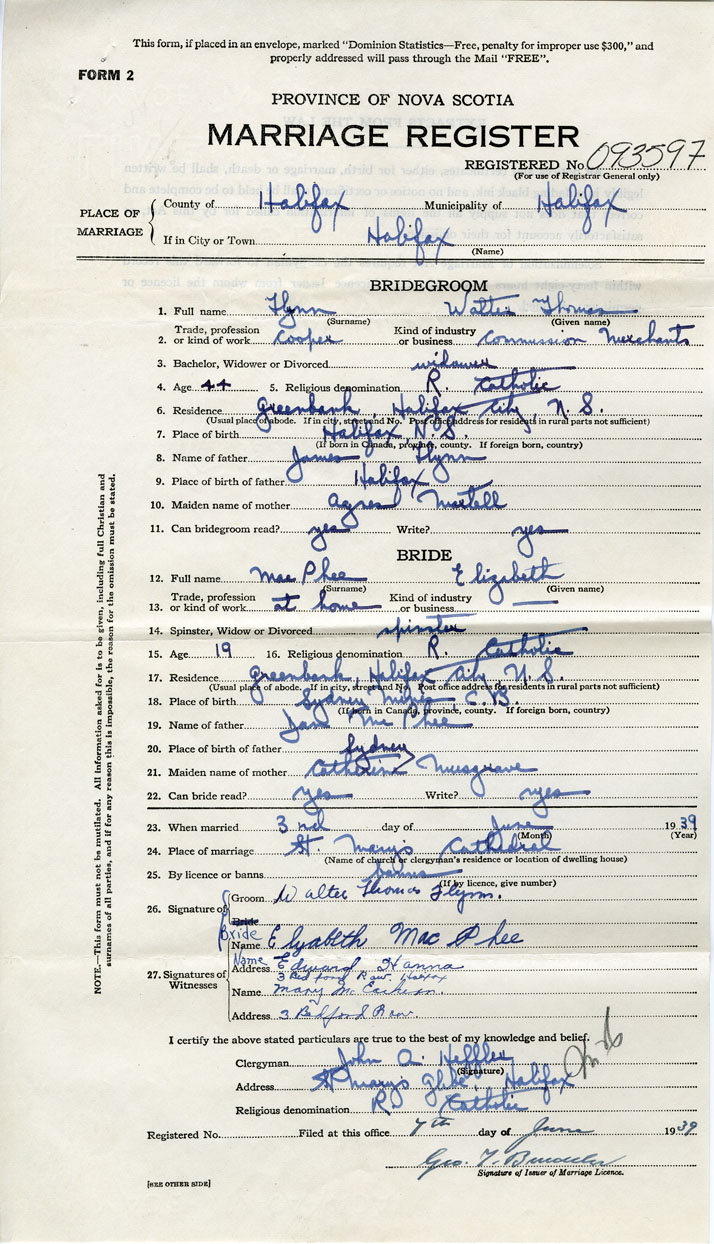 This form, if placed in an envelope, marked "Dominion Statistics—Free, penalty for improper use $300," and
properly addressed will pass through the Mail "FREE".
FORM 2
PROVINCE OF NOVA SCOTIA
MARRIAGE REGISTER
REGISTERED No. 093597
(For use of Registrar General only)
PLACE OF MARRIAGE
County of Halifax Municipality of Halifax
If in City or Town Halifax
(Name)
BRIDEGROOM
1. Full name Flynn Walter Thomas
(Surname) (Given name)
2. Trade, profession or kind of work Cooper Kind of industry or business Commission Merchants
3. Bachelor, Widower or Divorced widower
4. Age 44 5. Religious denomination R. Catholic
6. Residence Greenbank, Halifax City, N. S.
(Usual place of abode. If in city, street and No. Post office address for residents in rural parts not sufficient)
7. Place of birth Halifax N. S.
(If born in Canada, province, county. If foreign born, country)
8. Name of father James Flynn
9. Place of birth of father Halifax
10. Maiden name of mother Agnes Martell
11. Can bridegroom read? yes Write? yes
BRIDE
12. Full name MacPhee Elizabeth
(Surname) (Given name)
13. Trade, profession or kind of work at home Kind of industry or business —
14. Spinster, Widow or Divorced spinster
15. Age 19 16. Religious denomination R. Catholic
17. Residence Greenbank, Halifax City N. S.
(Usual place of abode. If in city, street and No. Post office address for residents in rural parts not sufficient)
18. Place of birth Sydney Mines C.B.
(If born in Canada, province, county. If foreign born, country)
19. Name of father Mac Phee
20. Place of birth of father Sydney
21. Maiden name of mother Catherine Musgrave
22. Can bride read? yes Write? yes
23. When married 3rd day of June 1939
(Month) (Year)
24. Place of marriage St. Mary's Cathedral
(Name of church or clergyman's residence or location of dwelling house)
25. By licence or banns banns
(If by licence, give number)
26. Signature of
Groom Walter Thomas Flynn.
Bride
Bride
Name Elizabeth Mac Phee
Name
Address Edward Hanna
3 Bedford Row. Halifax
27. Signatures of Witnesses
Name Mary McEachern
Address 3 Bedford Row.
I certify the above stated particulars are true to the best of my knowledge and belief.
Clergyman John A. Heffler
(Signature)
Address St Mary's Glebe Halifax
Religious denomination R. Catholic
Registered No. Filed at this office 7th day of June 1939
Geo. T.
Signature of Issuer of Marriage Licence.
[SEE OTHER SIDE]
NOTE.—This form must not be mutilated. All information asked for is to be given, including full Christian and
surnames of all parties, and if for any reason this is impossible, the reason for the omission must be stated.